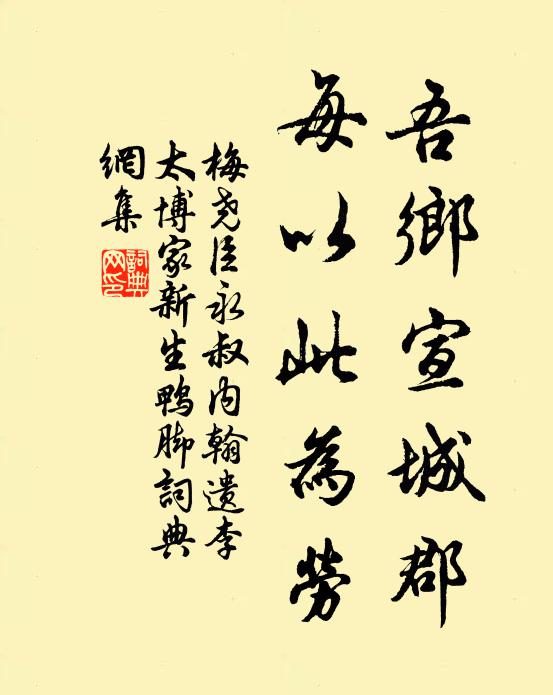 吾鄉宣城郡
每以此為勞
梅堯臣永叔內翰遺李
太博家新生鴨脚詞典
網集
詞典網印